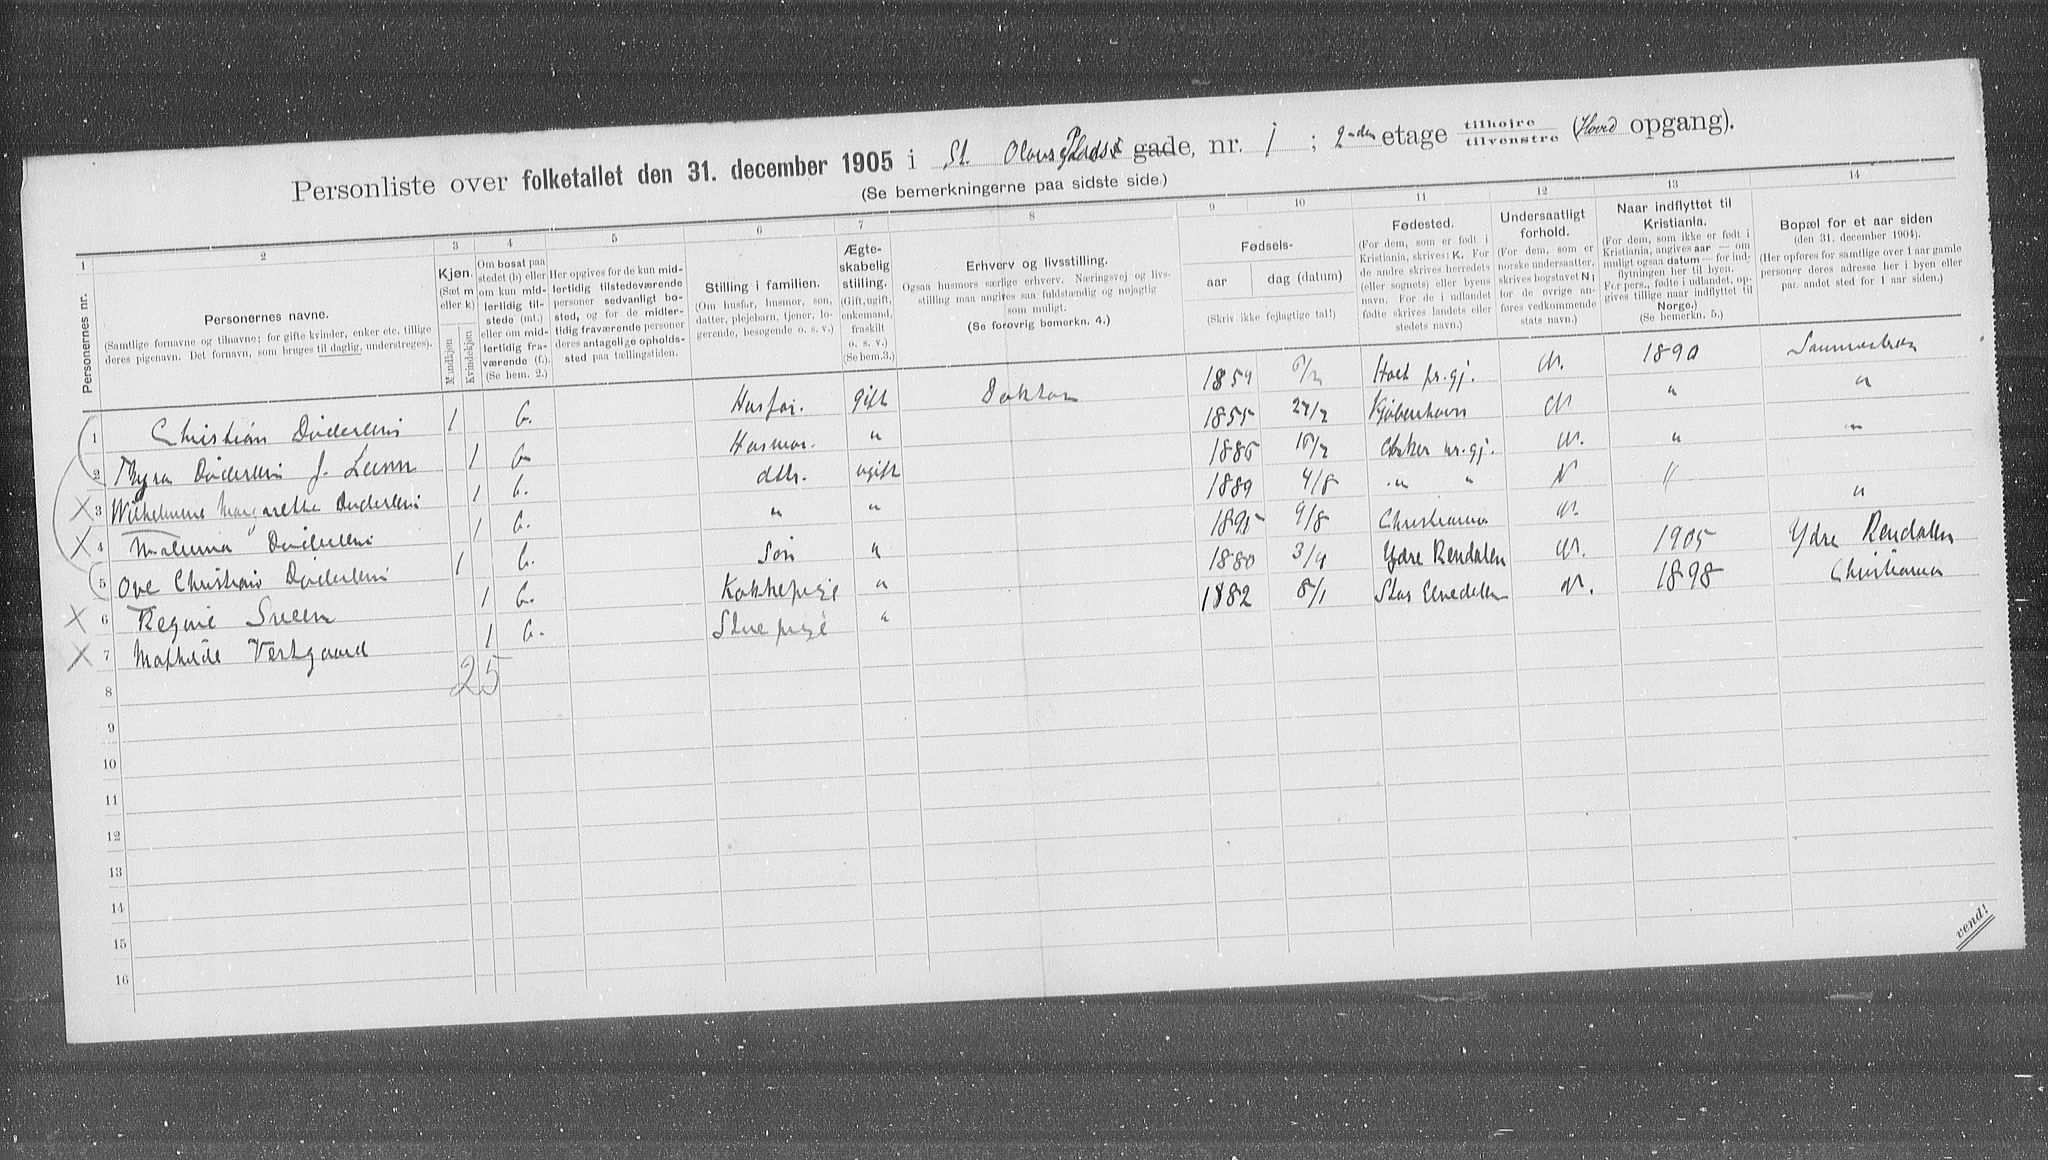 Personliste over folketallet den 31. december 1905 i St. Olavs Plads gade, nr. 1 ; 2-den etage tilhøjre tilvenstre (Hoved opgang).
(Se bemerkningerne paa sidste side.)
1 2 3 4 5 6 7 8 9 10 11 12 13 14
Personernes nr.
Personernes navne.
(Samtlige fornavne og tilnavne; for gifte kvinder, enker etc. tillige deres pigenavn. Det fornavn, som bruges til daglig, understreges).
Kjøn. (Sæt m eller k)
Mandkjøn Kvindekjøn
Om bosat paa stedet (b) eller om kun midlertidig tilstede (mt.) eller om midlertidig fraværende (f.). (Se bem. 2.)
Her opgives for de kun midlertidig tilstedeværende personer sedvanligt bosted, og for de midlertidig fraværende personer deres antagelige opholdssted paa tællingstiden.
Stilling i familien.
(Om husfar, husmor, søn, datter, plejebarn, tjener, logerende, besøgende o. s. v.)
Ægteskabelig stilling. (Gift, ugift, enkemand, fraskilt o. s. v.) (Se bem. 3.)
Erhverv og livsstilling.
Ogsaa husmors særlige erhverv. Næringsvej og livsstilling maa angives saa fuldstændig og nøjagtig som muligt.
(Se forøvrig bemerkn. 4.)
Fødsels-
aar dag (datum)
(Skriv ikke fejlagtige tal!)
Fødested.
(For dem, som er født i Kristiania, skrives: K. For de andre skrives herredets (eller sognets) eller byens navn. For de i udlandet fødte skrives landets eller stedets navn.)
Undersaatligt forhold.
(For dem, som er norske undersaatter, skrives bogstavet N; for de øvrige anføres vedkommende stats navn.)
Naar indflyttet til Kristiania.
(For dem, som ikke er født i Kristiania, angives aar — om muligt ogsaa datum — for indflytningen her til byen. For pers., fødte i udlandet, opgives tillige naar indflyttet til Norge.)
(Se bemerkn. 5.)
Bopæl for et aar siden
(den 31. december 1904).
(Her opføres for samtlige over 1 aar gamle personer deres adresse her i byen eller par. andet sted for 1 aar siden.)
1 Christian Døderlein 1 b. Husfar. gift Doktor 1854 Holt pr.gj. N. 1890 Sammesteds
2 Thyra Døderlein f. Lunn 1 b. Husmor. " 1855 27/2 Kjøbenhavn N "
3 Wilhelmine Margarethe Døderlein 1 b. dtr. ugift 1886 Aker pr.gj. N. "
4 Døderlein 1 b. " " 1889 4/8 " " N "
5 Ove Christian Døderlein 1 b. Søn " 1895 9/8 Christiania N. "
6 Regine Sveen 1 b. Kokkepige " 1880 3/4 Ydre Rendalen N. 1905 Ydre Rendalen
7 Mathilde Vestgaard 1 b. Stuepige " 1882 8/1 Stor Elvedalen N. 1898 Christiania
8 25
9
10
11
12
13
14
15
16
vend!